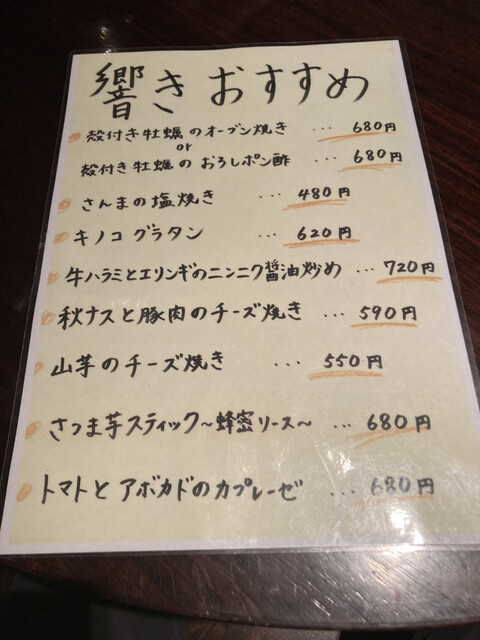 響き おすすめ
殻付き牡蠣のオーブン焼き … 680円
or
殻付き牡蠣の おろしポン酢 … 680円
さんまの塩焼き … 480円
キノコグラタン … 620円
牛ハラミとエリンギのニンニク醤油炒め … 720円
秋ナスと豚肉のチーズ焼き … 590円
山芋のチーズ焼き … 550円
さつま芋スティック〜蜂密ソース〜 … 680円
トマトと アボカドのカプレーゼ … 680円